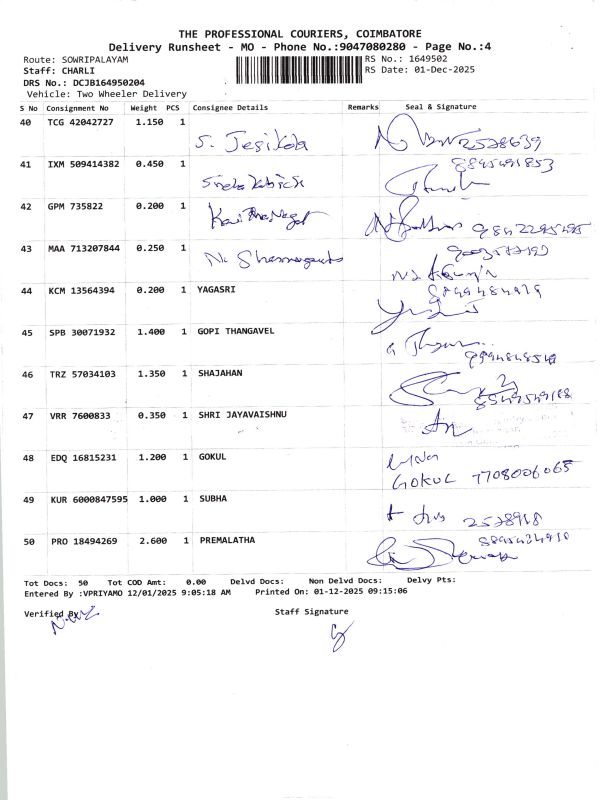 THE PROFESSIONAL COURIERS, COIMBATORE
Delivery Runsheet - MO - Phone No.:9047080280 - Page No.:4
Route: SOWRIPALAYAM RS No.: 1649502
Staff: CHARLI RS Date: 01-Dec-2025
DRS No.: DCJB164950204
Vehicle: Two Wheeler Delivery
S No Consignment No Weight PCS Consignee Details Remarks Seal & Signature
40 TCG 42042727 1.150 1 S. Jesikala 2528639
41 IXM 509414382 0.450 1
42 GPM 735822 0.200 1
43 MAA 713207844 0.250 1
44 KCM 13564394 0.200 1 YAGASRI
45 SPB 30071932 1.400 1 GOPI THANGAVEL
46 TRZ 57034103 1.350 1 SHAJAHAN
47 VRR 7600833 0.350 1 SHRI JAYAVAISHNU
48 EDQ 16815231 1.200 1 GOKUL
GOKUL 7708006065
49 KUR 6000847595 1.000 1 SUBHA 2528918
50 PRO 18494269 2.600 1 PREMALATHA
Tot Docs: 50 Tot COD Amt: 0.00 Delvd Docs: Non Delvd Docs: Delvy Pts:
Entered By :VPRIYAMO 12/01/2025 9:05:18 AM Printed On: 01-12-2025 09:15:06
Verified By Staff Signature